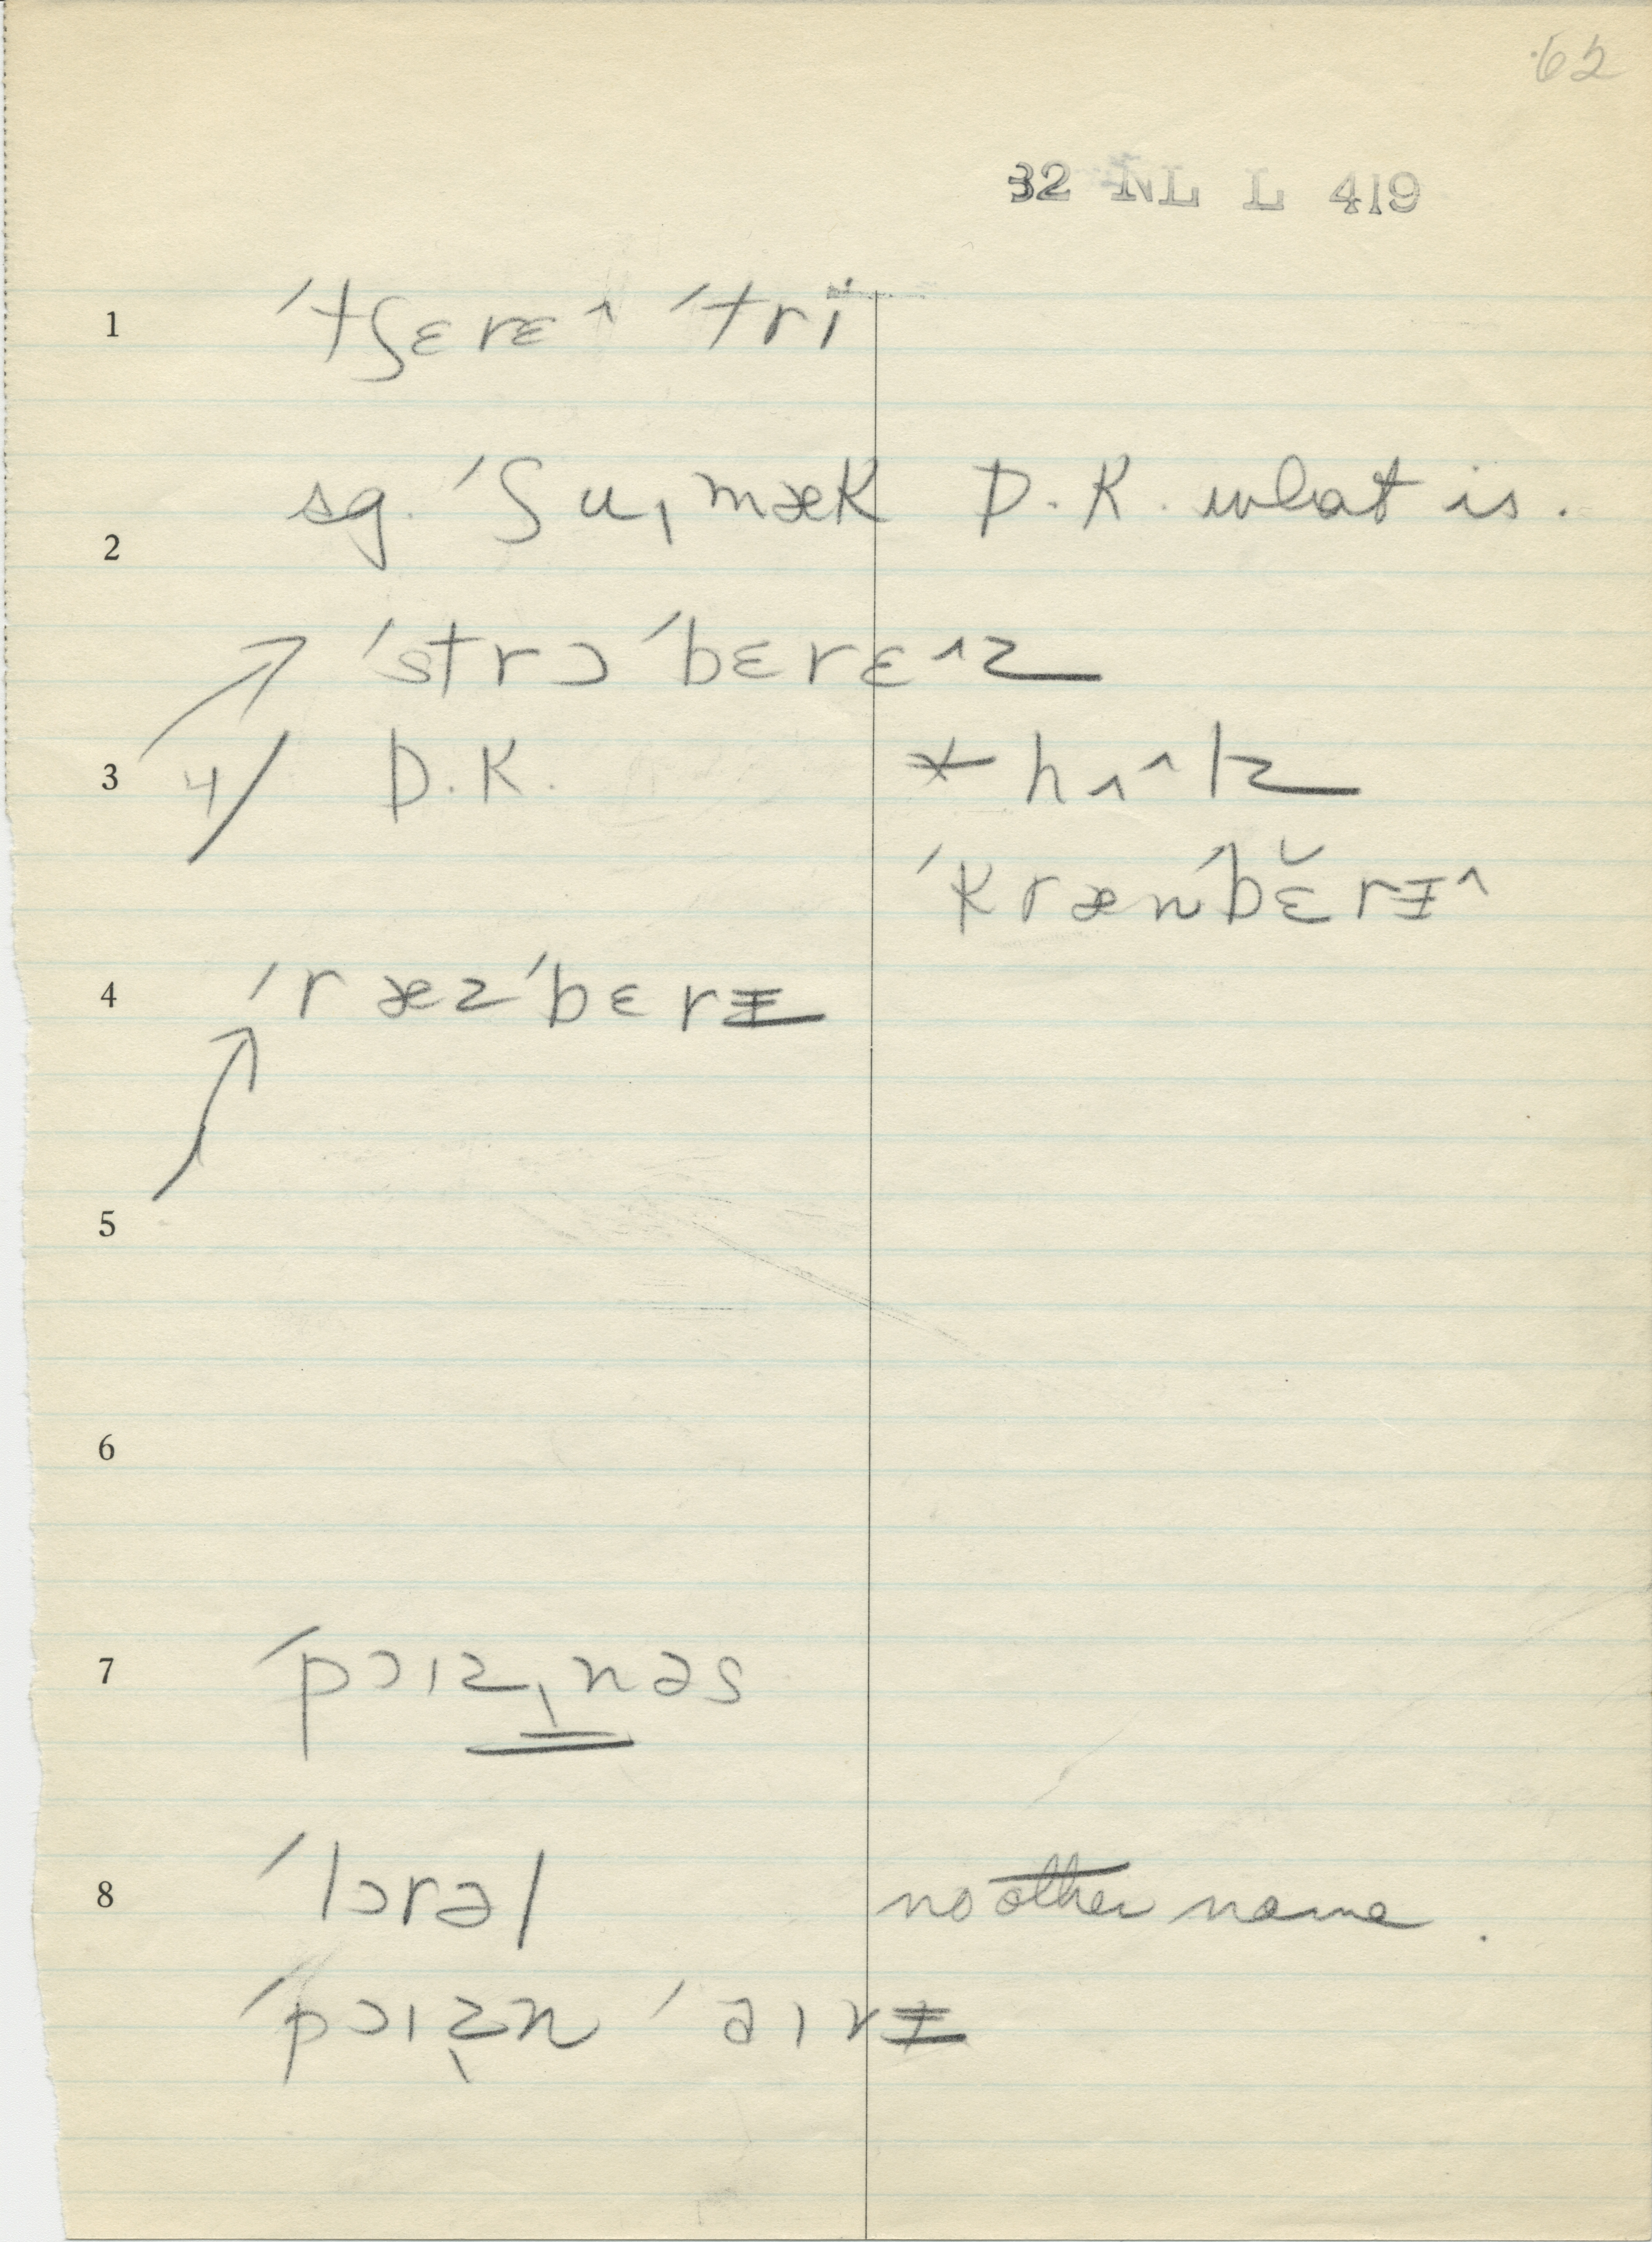 62
32 NL L 419
1 ˈtʃɛrɛ^ ˈtri
sg. ˈʃuˌmæk D.K. what is.
2
ˈstrɔˈbɛrɛ^z
3 4/ D.K. * hʌ^kz
ˈkrænˈbɛ̆rɪ̵^
4 ˈræzˈbɛrɪ̵
5
6
7 ˈpɔɪzˌnəs
8 ˈlɔrəl no other name.
ˈpɔɪz̩n ˈaɪvɪ̵